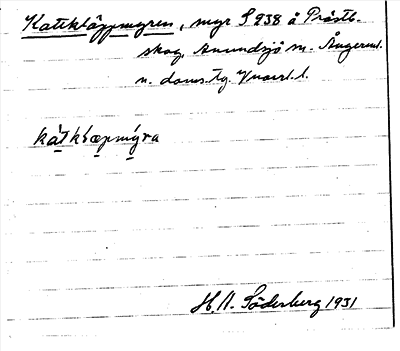 Kattkläppmyren, myr S 938 å Prästb.
skog, Anundsjö sn. Ångerml.
n. doms.
kátkļæpmýra
H. A. Söderberg 1931